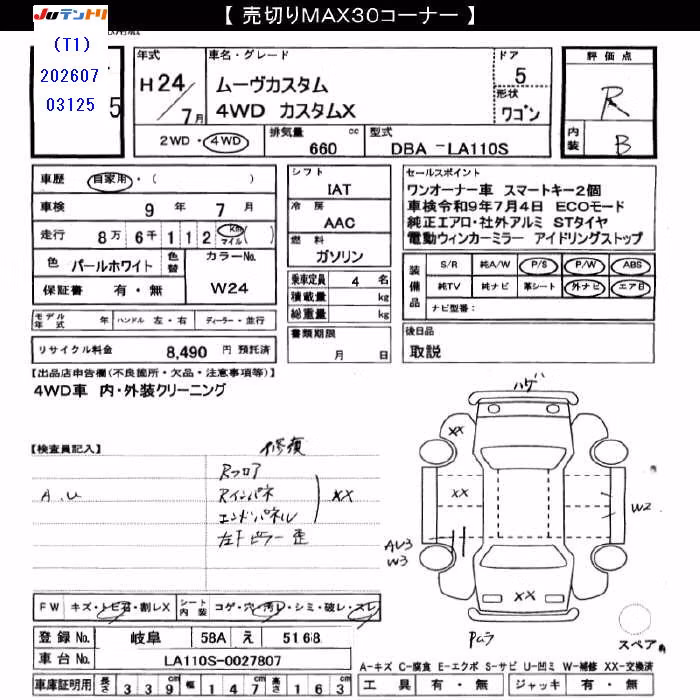 【 売切りMAX30コーナー 】
JUテントリ
(T1)
202607
03125
5
年式
H24/7月
車名・グレード
ムーヴカスタム
4WD カスタムX
ドア
5
形状
ワゴン
評価点
R
内装
B
2WD・4WD
排気量
660 cc
型式
DBA -LA110S
車歴 自家用・( )
車検 9年 7月
走行 8万6千112 km マイル ( )
色 パールホワイト 色替
カラーNo.
W24
保証書 有・無
モデル年式 年 ハンドル 左・右 ディーラー・並行
リサイクル料金 8,490 円 預託済
シフト
IAT
冷房
AAC
燃料
ガソリン
乗車定員 4 名
積載量 kg
総重量 kg
書類期限
月 日
セールスポイント
ワンオーナー車 スマートキー2個
車検令和9年7月4日 ECOモード
純正エアロ・社外アルミ STタイヤ
電動ウィンカーミラー アイドリングストップ
装備品
S/R 純A/W P/S P/W ABS
純TV 純ナビ 革シート 外ナビ エアB
ナビ型番:
後日品
取説
【出品店申告欄(不良箇所・欠品・注意事項等)】
4WD車 内・外装クリーニング
【検査員記入】
A.U
修復
Rフロア
Rインパネ
エンドパネル
XX
左Fピラー歪
ハゲ
XX
XX
W2
AU3
W3
XX
スペア
FW キズ・トビ石・割レX
シート内装 コゲ・穴・汚レ・シミ・破レ・スレ
登録No. 岐阜 58A え 5168
車台No. LA110S-0027807
A-キズ C-腐食 E-エクボ S-サビ U-凹ミ W-補修 XX-交換済
車庫証明用 長さ 339cm 幅 147cm 高さ 163cm
工具 有・無 ジャッキ 有・無